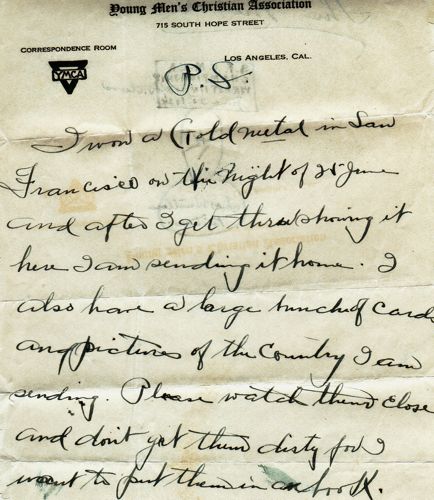 Young Men's Christian Association
715 SOUTH HOPE STREET
CORRESPONDENCE ROOM
YMCA
LOS ANGELES, CAL.
P.S.
I won a Gold metal in San
Francisco on the night of 25 June
and after I get thru showing it
here I am sending it home. I
also have a large bunch of cards
and pictures of the Country I am
sending. Please watch them close
and don't get them dirty for I
want to put them in a book.